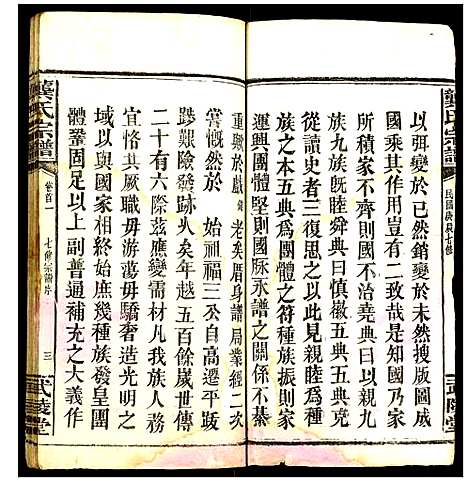 龔氏宗譜
民國庚辰七修
武陵堂
以弭變於已然銷變於未然搜版圖成
國乘其作用豈有二致哉是知國乃家
所積家不齊則國不治堯典曰以親九
族九族既睦舜典曰慎徽五典五典克
從讀史者三復思之以此見親睦為種
族之本五典為團體之符種族振則家
運興團體堅則國脉永譜之關係不綦
重歟於戲
老矣廁身譜局業經二次
嘗慨然於 始祖福三公自高遷平跋
踄艱險發跡人矣年越五百餘嵗世傳
二十有六際茲應變需材凡我族人務
宜恪共厥職毋游蕩毋驕奢造光明之
域以與國家相始終庶幾種族皇團
體鞏固足以上副普通補充之大義作
龔氏宗譜
卷首一
七修宗譜序
三
武陵堂